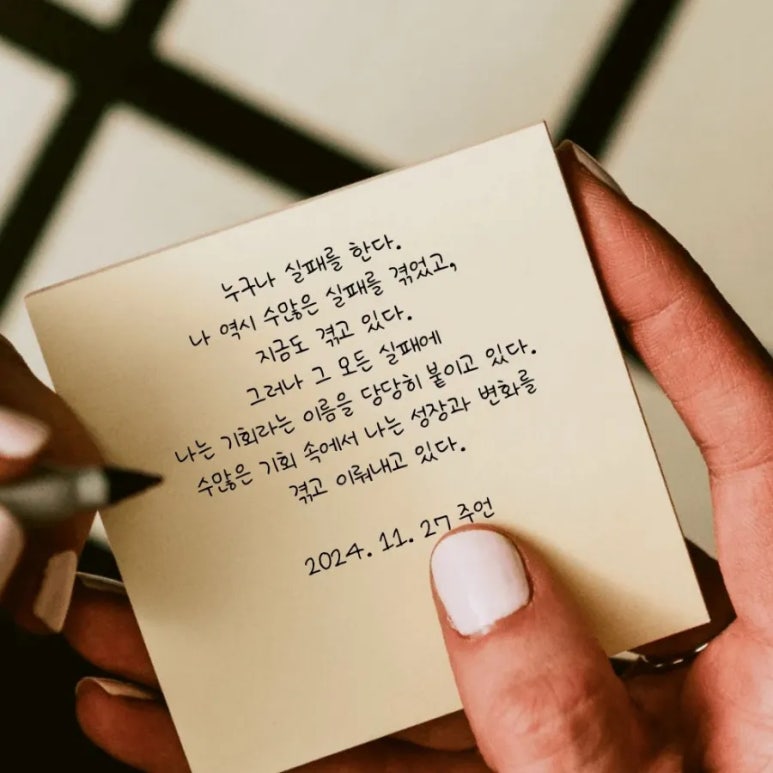 누구나 실패를 한다.
나 역시 수많은 실패를 겪었고,
지금도 겪고 있다.
그러나 그 모든 실패에
나는 기회라는 이름을 당당히 붙이고 있다.
수많은 기회 속에서 나는 성장과 변화를
겪고 이뤄내고 있다.
2024. 11. 27 주언